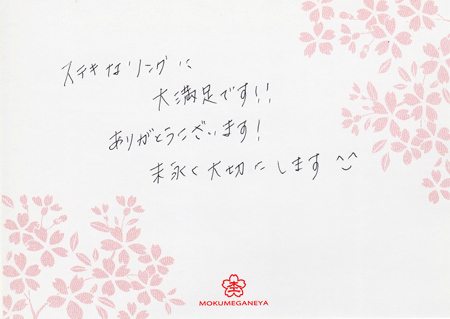 ステキなリングに
大満足です!!
ありがとうございます!
末永く大切にします ^^
MOKUMEGANEYA